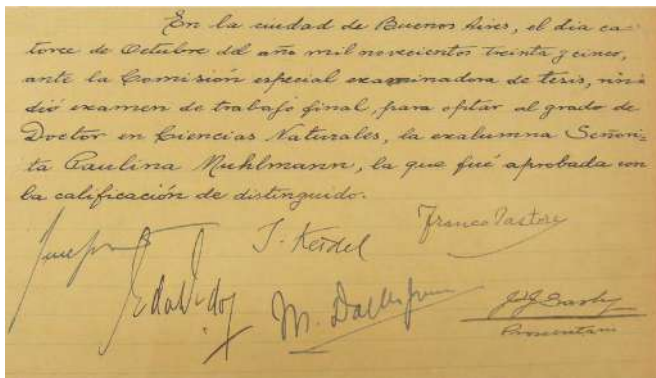 En la ciudad de Buenos Aires, el dia ca-
torce de Octubre del año mil novecientos treinta y cinco,
ante la Comisión especial examinadora de tesis, rin-
dió examen de trabajo final, para optar al grado de
Doctor en Ciencias Naturales, la exalumna Señori-
ta Paulina Muhlmann, la que fué aprobada con
la calificación de distinguido.
J. Keidel
Franco Pastore
M.